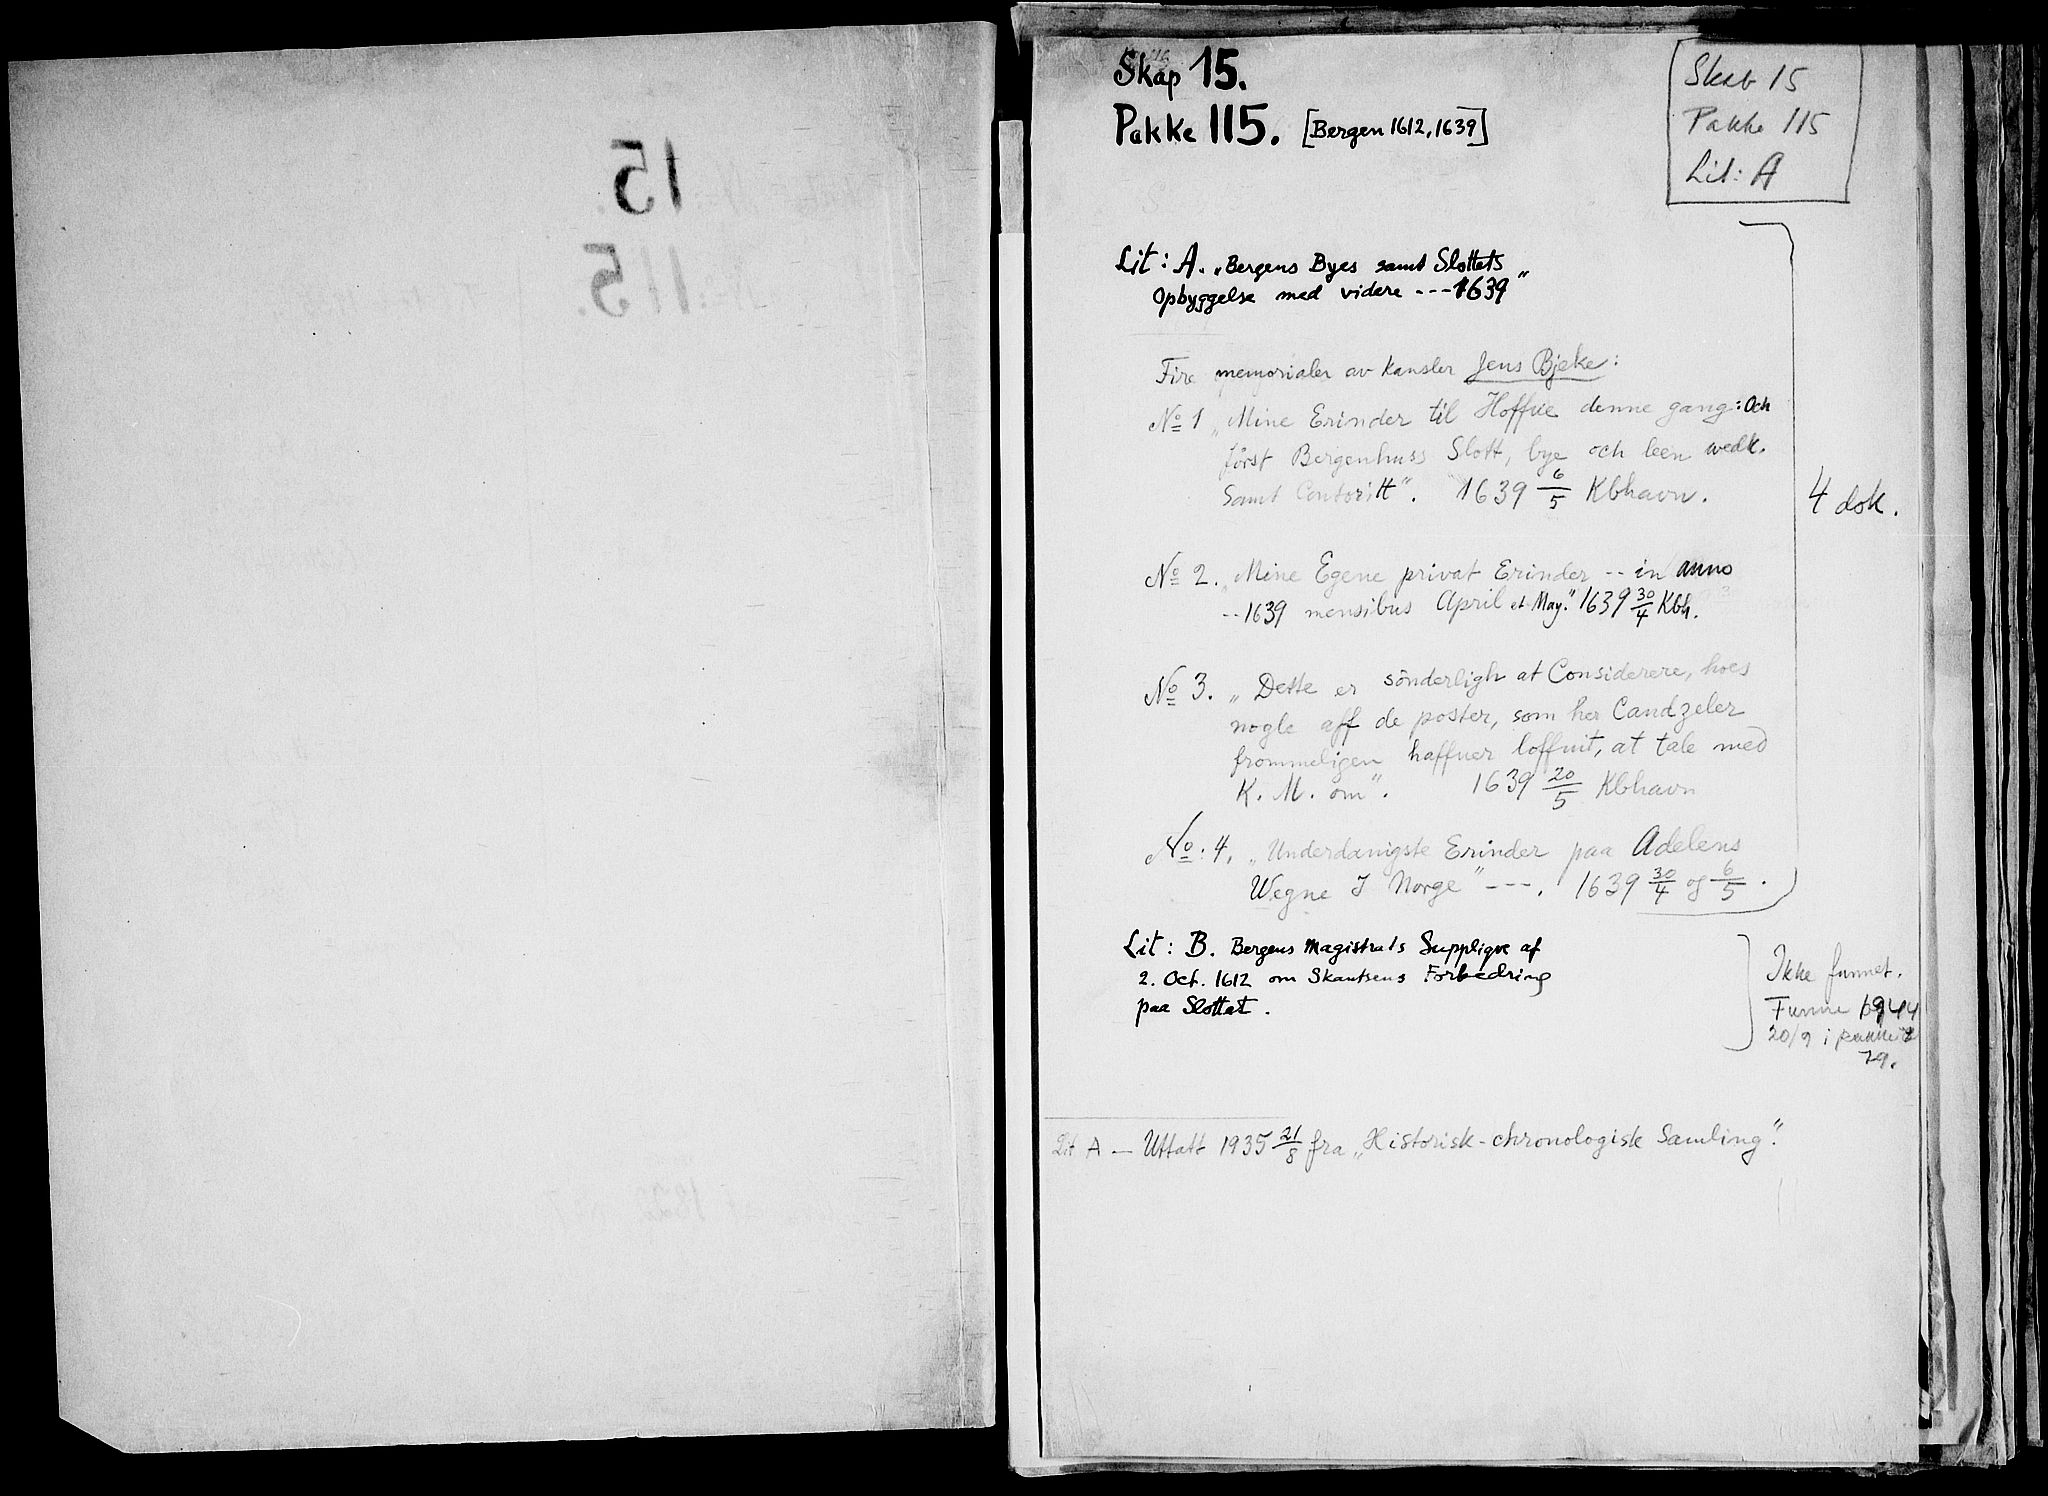 Skap 15.
Pakke 115. [Bergen 1612, 1639]
Skab 15
Pakke 115
Lit: A
Lit: A. „Bergens Byes samt Slottets
Opbyggelse med videre --- 1639"
Fire memorialer av kansler Jens Bjeke:
No 1 „Mine Erinder til Hoffue denne gang: Och
först Bergenhuss Slott, bye och leen wedk.
Samt Contoritt". 1639 6/5 Kbhavn.
4 dok.
No 2. „Mine Egene privat Erinder -- in anno
-- 1639 mensibus April et May." 1639 30/4 Kbh.
No 3. „Dette er sönderligh at Considerere, hoes
nogle aff de poster, som her Candzeler
frommeligen haffuer loffuit, at tale med
K. M. om". 1639 20/5 Kbhavn
No: 4. „Underdanigste Erinder paa Adelens
Wegne I Norge" ---. 1639 30/4 og 6/5.
Lit: B. Bergens Magistrats Supplique af
2. Oct. 1612 om Skantsens Forbedring
paa Slottet.
Ikke funnet.
20/9 i
79.
Lit A — Uttatt 1935 21/8 fra „Historisk-chronologisk Samling".